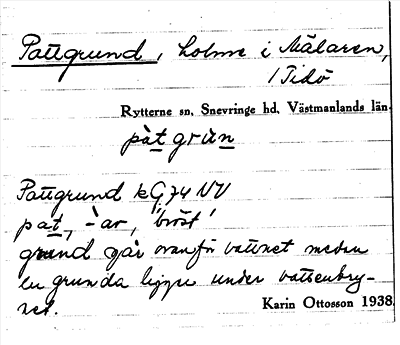 Pattgrund, holme i Mälaren,
/ Tidö
Rytterne sn. Snevringe hd. Västmanlands län.
pàt grun
Pattgrund kG74 NV
pat, -ar, 'bröst'
grund går ovanför vattnet medan
en grunda ligger under vattenbry-
net.
Karin Ottosson 1938.